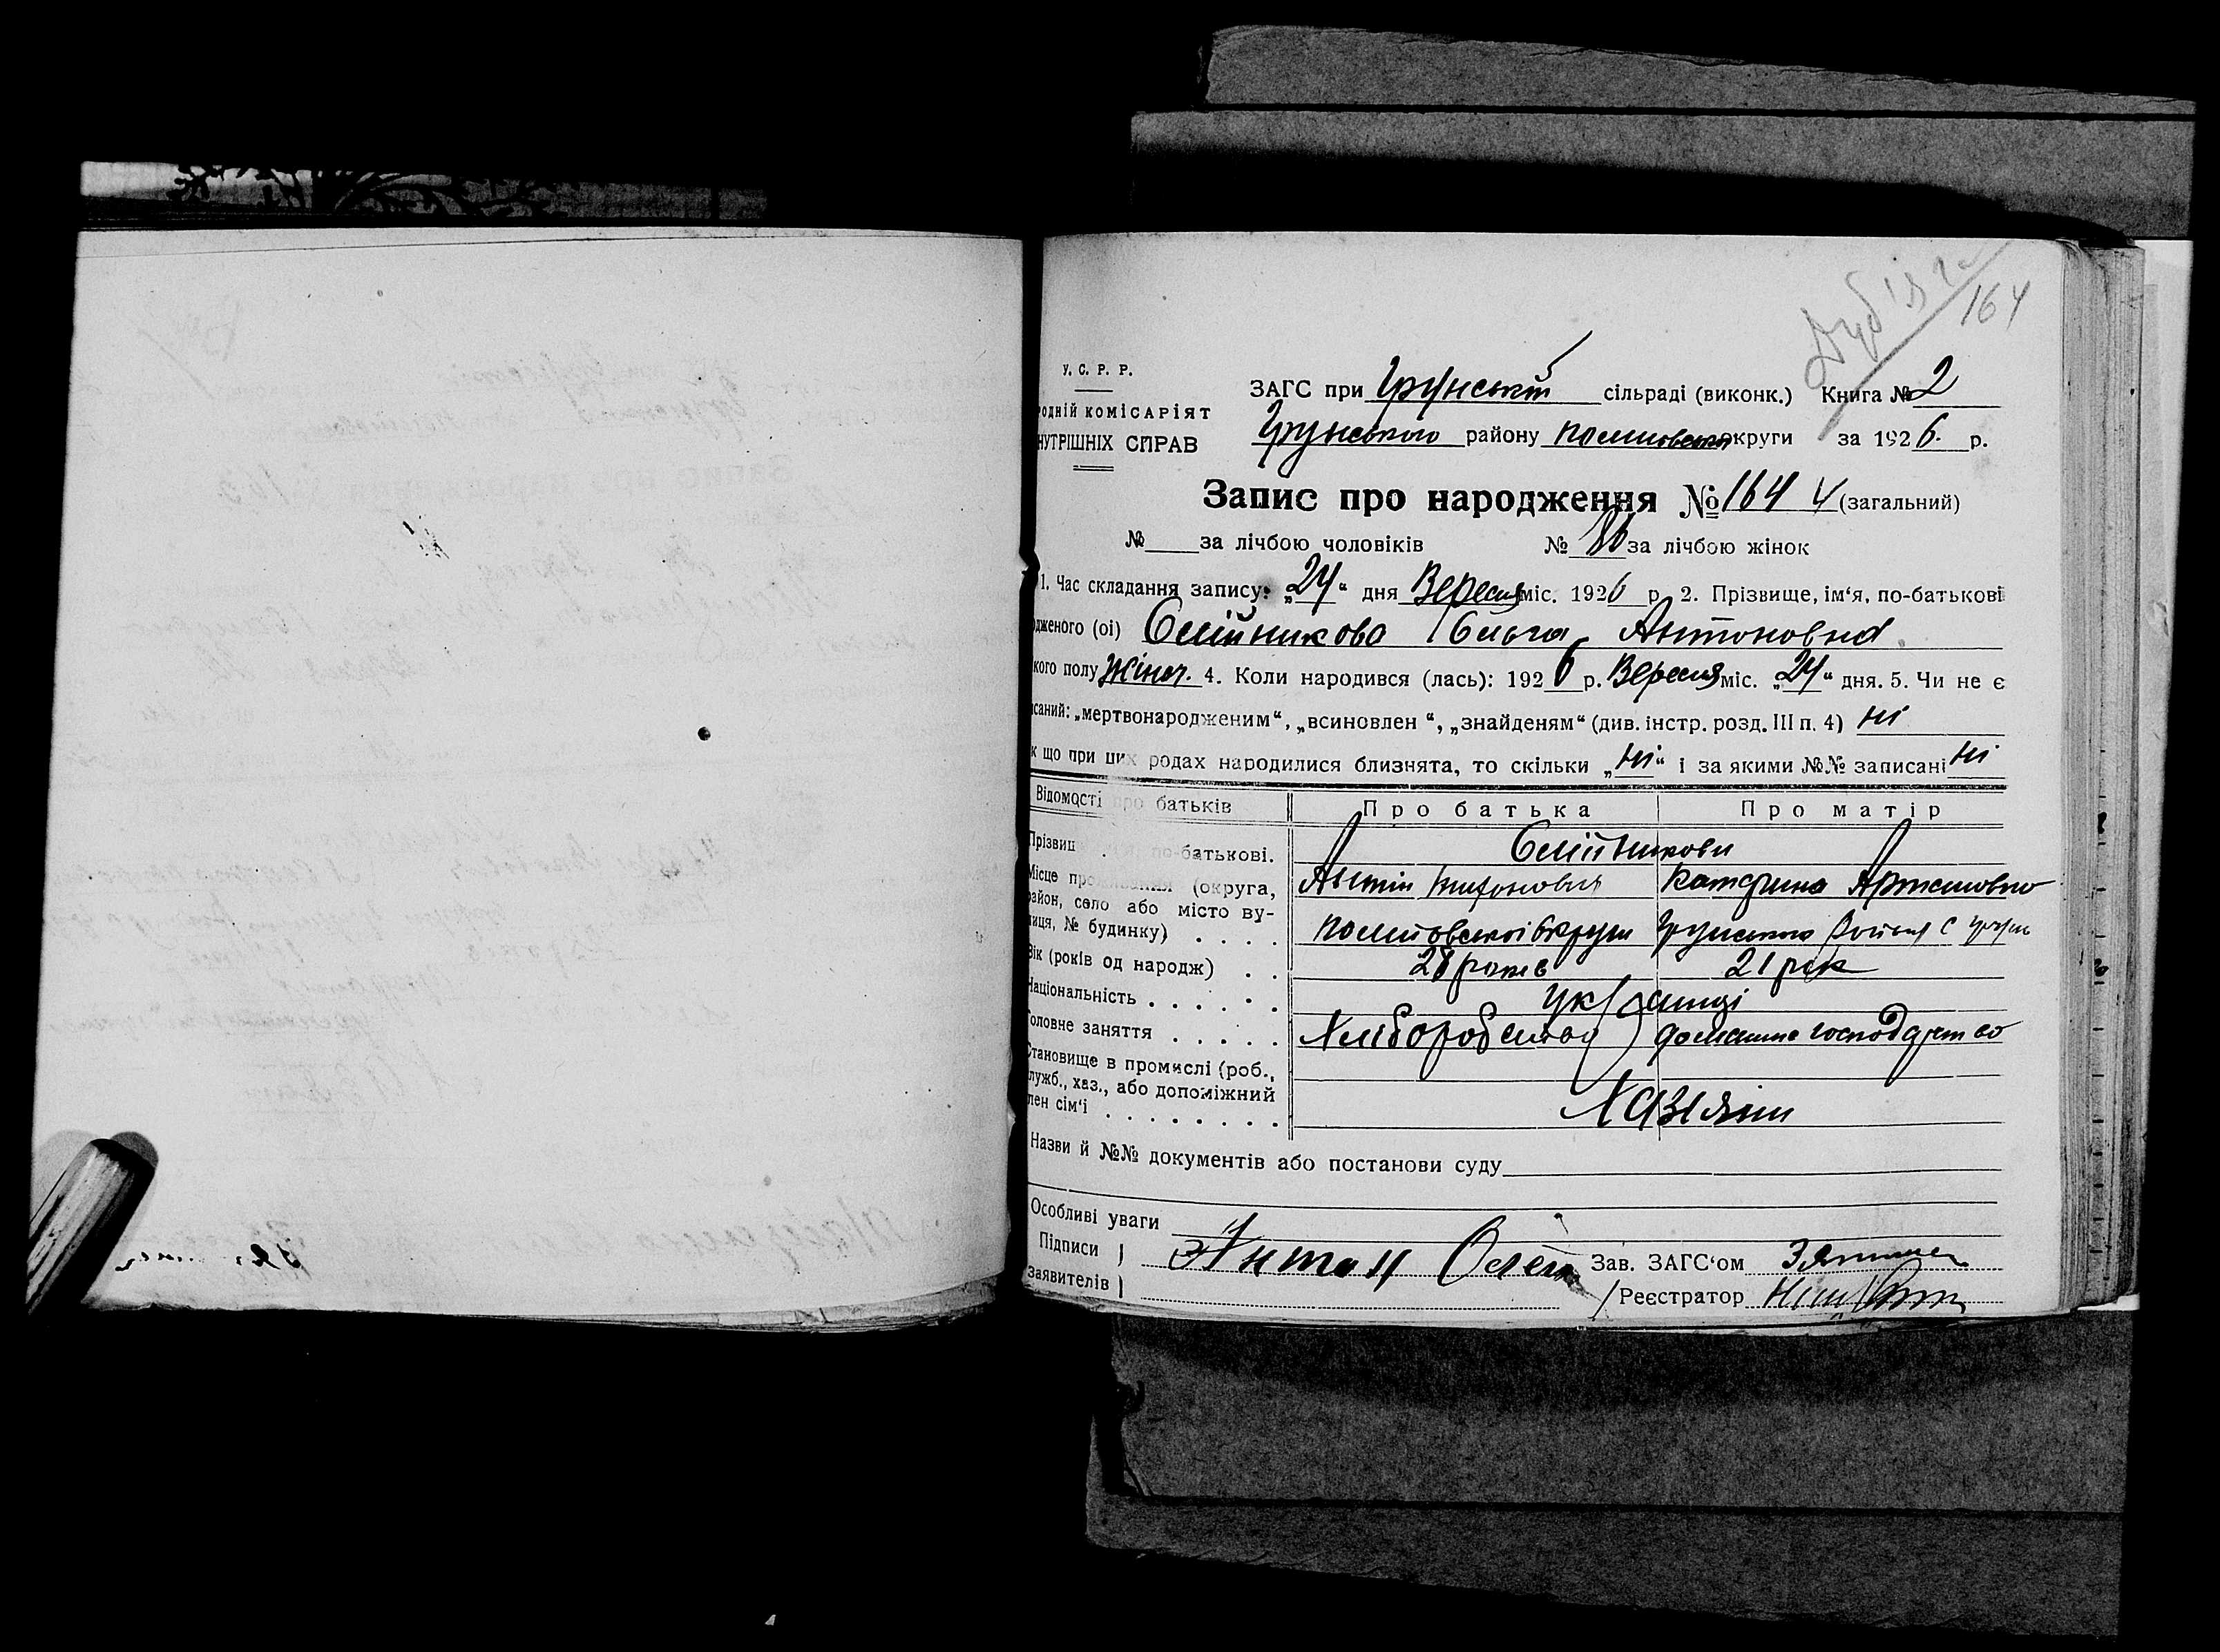 164
У. С. Р. Р.
ЗАГС при Грунській сільраді (виконк.) Книга № 2
родній комісаріят
Грунського району Полтавської округи за 1926. р.
НУТРІШНІХ СПРАВ
Запис про народження № 164 (загальний)
№ за лічбою чоловіків № 86 за лічбою жінок
1. Час складання запису: „24“ дня Вересня міс. 1926 р. 2. Прізвище, ім‘я, по-батькові
одженого (ої) Олійникова Ольга Антоновна
кого полу Жіноч. 4. Коли народився (лась): 1926 р. Вересня міс. „24“ дня. 5. Чи не є
исаний: „мертвонародженим“, „всиновлен “, „знайденям“ (див. інстр. розд. III п. 4) ні
к що при цих родах народилися близнята, то скільки „ні“ і за якими №№ записані ні
Відомості про батьків Про батька Про матір
Прізвищ по-батькові. Олійникови
Місце (округа, Антін Катерина Артемовна
район, село або місто ву-
лиця, № будинку) . . . . Полтавської округи Грунського Району с Грунь
Вік (років од народж) . . 28 років 21 рік
Національність . . . . . . Українці
Головне заняття . . . . . Хліборобство домашнє господарство
Становище в промислі (роб.,
служб., хаз., або допоміжний
лен сім‘ї . . . . . . . . Хазяїни
Назви й №№ документів або постанови суду
Особливі уваги
Підписи Антон Зав. ЗАГС‘ом
заявителів Реєстратор